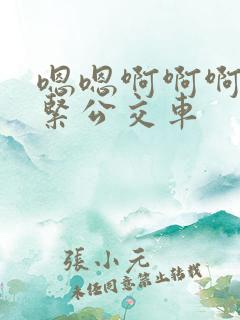 嗯嗯啊啊啊
緊公交車
張小元
未经同意禁止转载